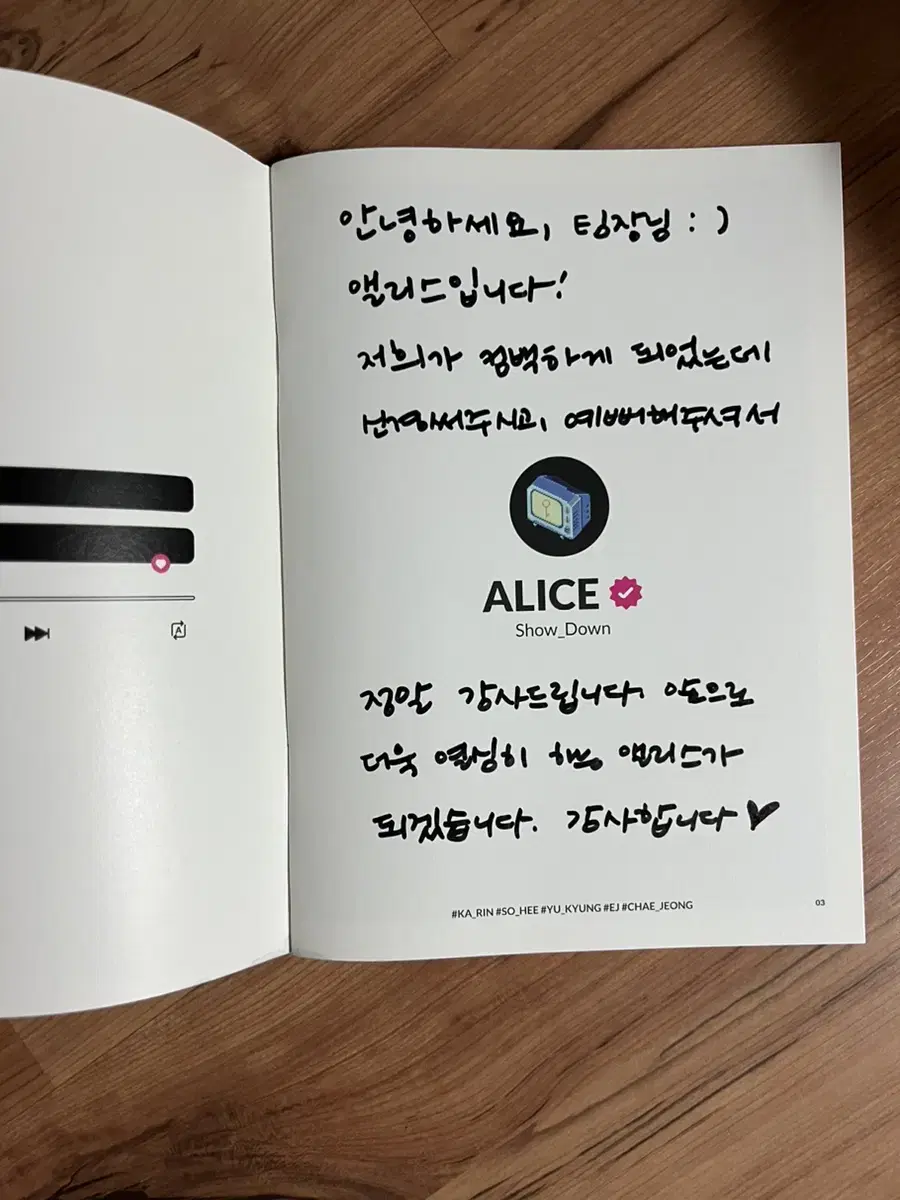 안녕하세요, 팀장님 : )
앨리스입니다!
저희가 컴백하게 되었는데
신경써주시고, 예뻐해주셔서
ALICE
Show_Down
정말 감사드립니다. 앞으로
더욱 열심히 하는 앨리스가
되겠습니다. 감사합니다 ♥
#KA_RIN #SO_HEE #YU_KYUNG #EJ #CHAE_JEONG
03